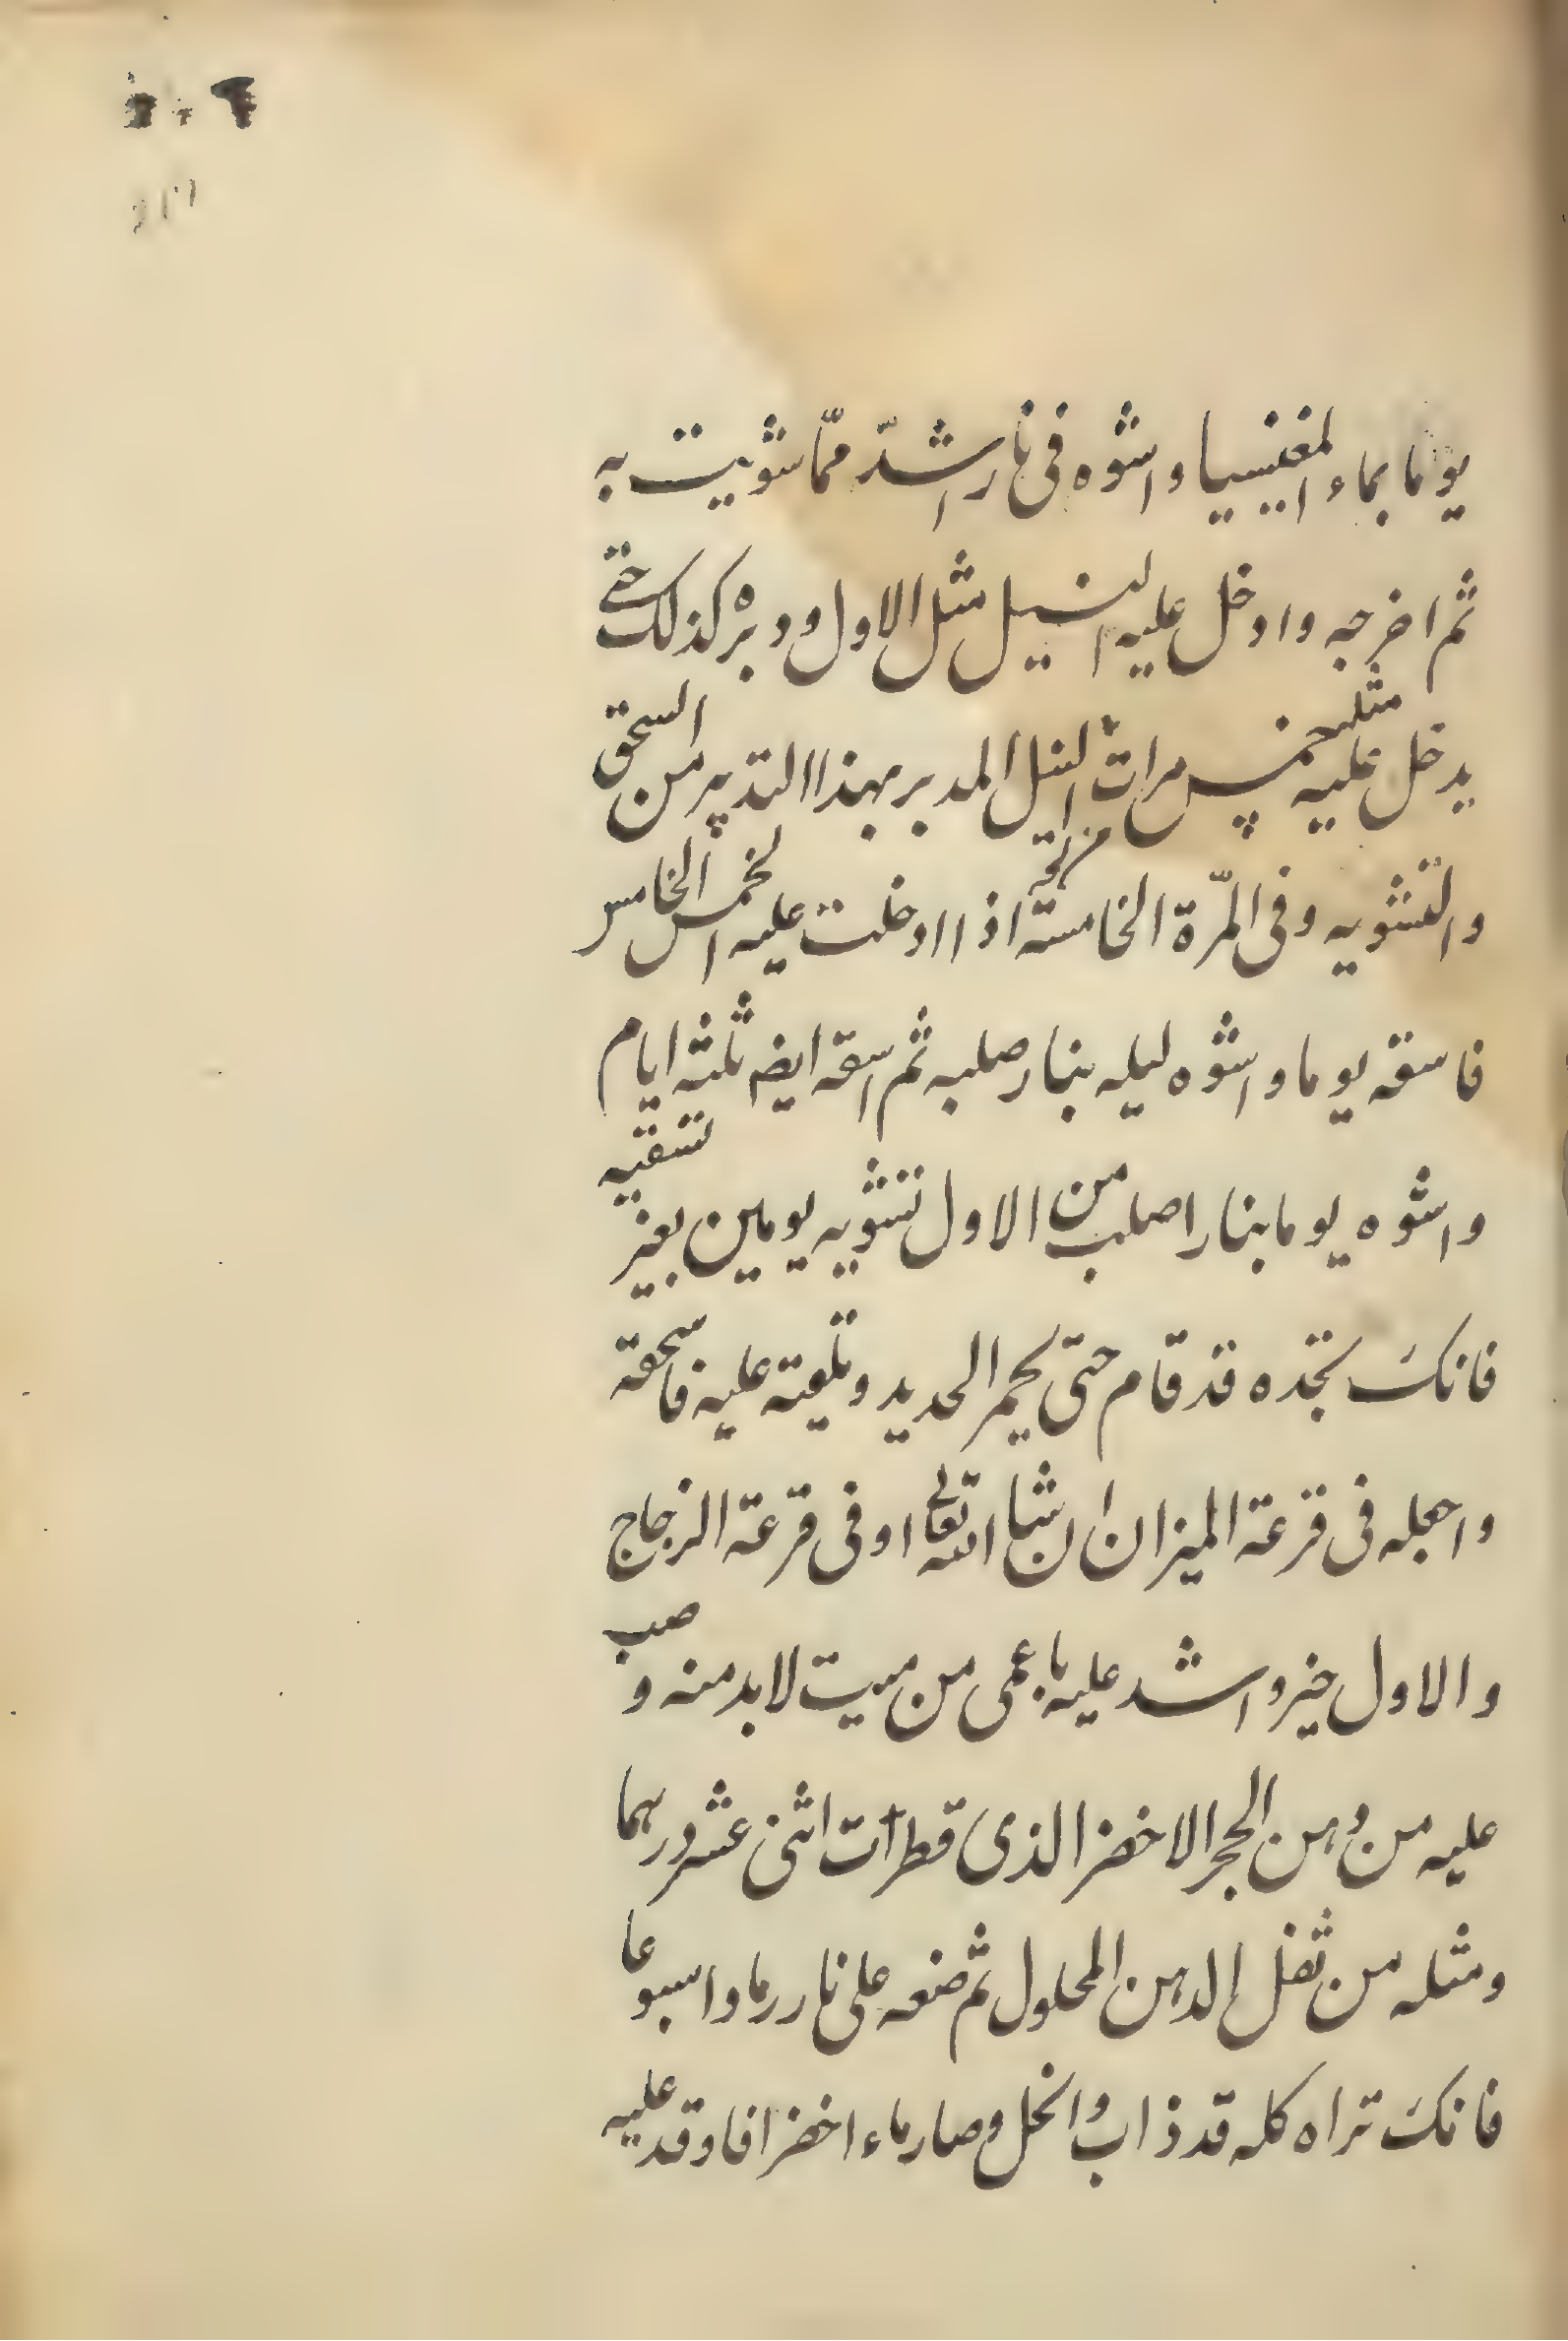 يوما بماء المغنيسيا واشوه في نار اشدّ ممّا شويت به
ثم اخرجه وادخل عليه النيل مثل الاول ودبره كذلك حتى
يدخل عليه مثليه خمس مرات النيل المدبر بهذا التدبير من السحق
والتشويه وفي المرّة الخامسة اذا ادخلت عليه الخمس الخامس
فاسقه يوما واشوه ليله بنار صلبه ثم اسقه ايض ثلثه ايام
واشوه يوما بنار اصلب من الاول تشويه يومين بغير تسقيه
فانك تجده قد قام حتى يحمر الحديد وتلقيه عليه فاسحقه
واجعله في قرعة الميزان ان شا الله تعالى او في قرعة الزجاج
والاول خير واشد عليه باعمى من ميت لابد منه وصب
عليه من دهن الحجر الاخضر الذي قطرات اثنى عشر درهما
ومثله من ثفل الدهن المحلول ثم ضعه على نار رماد اسبوعا
فانك تراه كله قد ذاب وانحل وصار ماء اخضرا فاوقد عليه